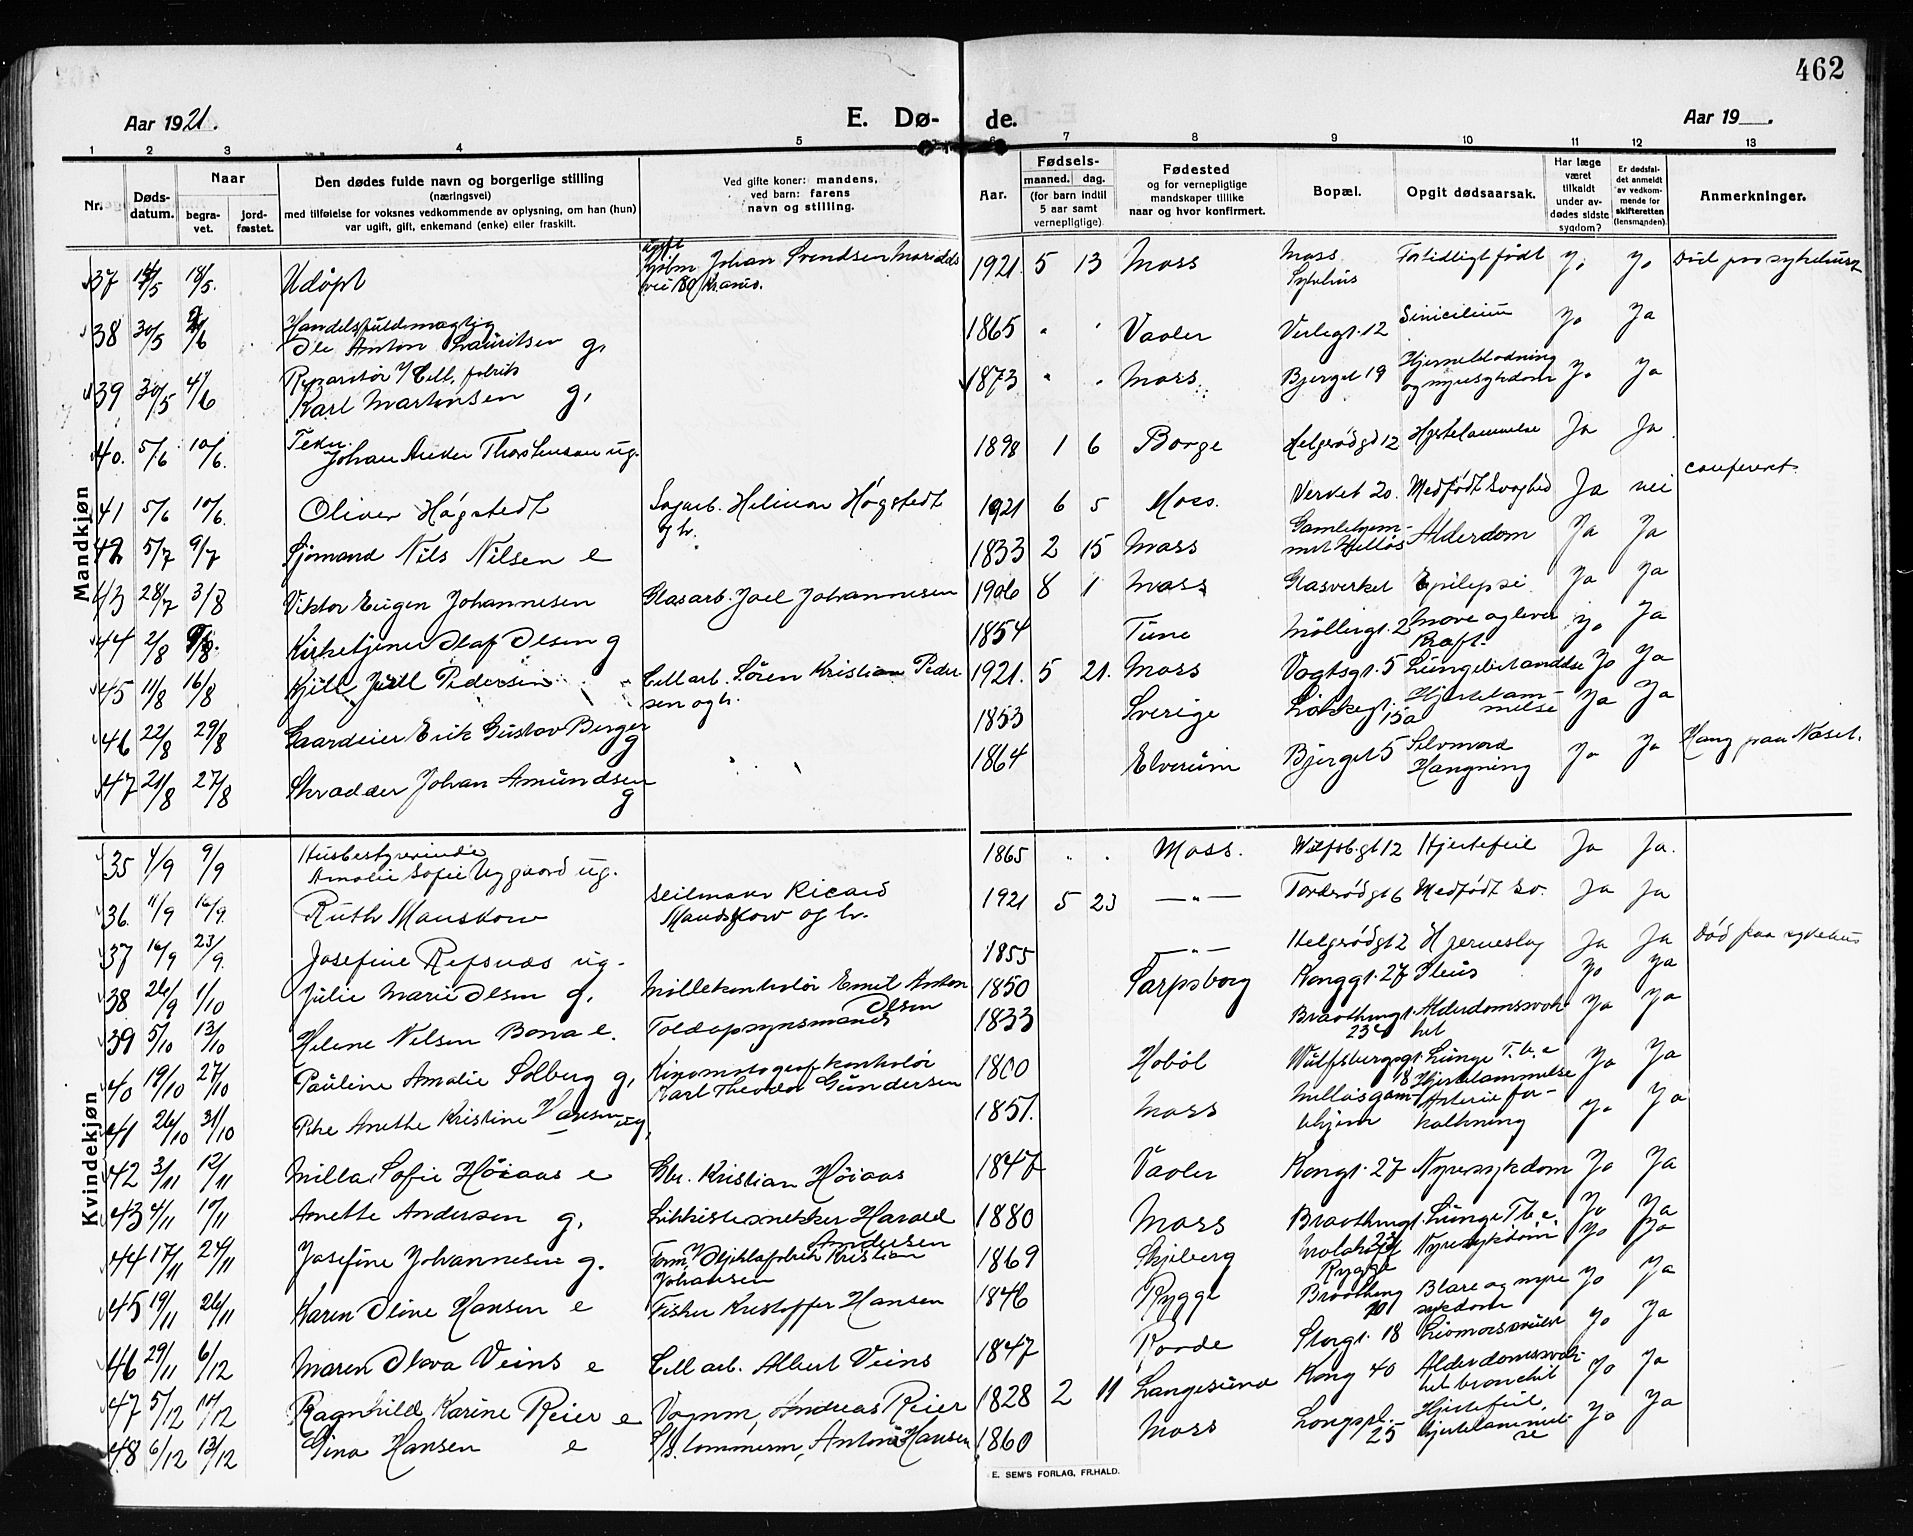 462
Aar 1921.
E. Dø-
de.
Aar 19 .
1 2 3 4 5 6 7 8 9 10 11 12 13
Nr.
Døds-
datum.
Naar
begra-
vet.
jord-
fæstet.
Den dødes fulde navn og borgerlige stilling
(næringsvei)
med tilføielse for voksnes vedkommende av oplysning, om han (hun)
var ugift, gift, enkemand (enke) eller fraskilt.
Ved gifte koner: mandens,
ved barn: farens
navn og stilling.
Aar.
Fødsels-
maaned. dag.
(for barn indtil
5 aar samt
vernepligtige).
Fødested
og for vernepligtige
mandskaper tillike
naar og hvor konfirmert.
Bopæl.
Opgit dødsaarsak.
Har læge
været
tilkaldt
under av-
dødes sidste
sygdom?
Er dødsfal-
det anmeldt
av vedkom-
mende for
skifteretten
(lensmanden).
Anmerkninger.
Mandkjøn
37 18/5. Udøpt Johan Svendsen 1921 5 13 Moss Moss Sykehus Fortidligt født Jo Jo Død paa sykehuset
38 30/5 Handelsfuldmægtig
Ole Anton Lauritsen g, 1865 " " Vaaler Verlegt. 12 Ja
39 30/5 4/6 Reparatør v/ Cell. fabrik
Karl Martinsen g, 1873 " " Moss Bjerget 19 Hjerneblødning
og nyresykdom Jo Ja
40. 5/6 10/6. Johan Thorstensen ug. 1898 1 6 Borge Helgerødgd 12 Hjertelammelse Ja Ja
41 5/6 10/6. Oliver Høgstedt Høgstedt
og h. 1921 6 5 Moss. Verket 20. Medfødt Svaghed Ja nei confereret.
42 5/7 9/7 Sjømand Nils Nilsen e 1833 2 15 Moss Alderdom Ja Ja
43 28/7 3/8 Viktor Eugen Johannesen Glasarb. Joel Johannesen 1906 8 1 Moss Glasverket Epilepsi Ja Ja
44 2/8 Kirketjener Olaf Olsen g 1854 Tune Møllergt. 2 Mave og lever
Kræft. Jo Ja
45 11/8 16/8 Kjell Juell Pedersen Cellarb. Søren Kristian Peder
sen og h. 1921. 5 21. Moss Vogtsgt. 5 Lungebetændelse Jo Ja
46 22/8 29/8 Gaardeier Erik Gustav Berger
g 1853 Sverige Løkkegt.
15a Hjertelam-
melse Ja Ja
47 21/8 27/8 Skrædder Johan Amundsen
g 1864 Elverum Bjerget 5 Selvmord
Hængning Jo Ja Hang paa Næset.
Kvindekjøn
35 4/9 9/9 Husbestyrerinde
Amalie Sofie Nygaard ug. 1865 " " Moss. Wulfsb.gt 12 Hjertefeil Ja Ja.
36. 11/9 16/9. Ruth Manskow Seilmaker Ricard
Manskow og h. 1921 5 23 — " — 6 Medfødt sv. Ja Ja
37 16/9 23/9. Josefine Refsnæs ug. 1855 — " — Helgerødgt 2 Hjerneslag Ja Ja Død paa sykehus
38 26/9 1/10 Julie Marie Olsen g, Møllekontrolør Emil Anton
Olsen 1850 Sarpsborg Konggt. 27 Ileus Jo Ja
39 5/10 13/10 Helene Nilsen Bona e. Toldopsynsmand 1833 Braathengt
23c Alderdomssvak-
het Ja Ja
40 19/10 27/10 Pauline Amalie Solberg g, Kinomatografkontrolør
Karl Theodor Gundersen 1860 Hobøl Wulfsbergsgt.
18 Lunge T.b.c
Hjertelammelse Jo Ja
41 26/10 31/10 Anethe Kristine Hansen ug, 1851. Moss Melløsgam-
lehjem Arterie for-
kalkning Jo Ja
42 3/11 12/11 Milla Sofie Høiaas e Gbr. Kristian Høiaas 1847 Vaaler Kongt. 27 Nyresykdom Jo Ja
43 4/11 10/11 Anette Andersen g, Likkistesnekker Harald
Andersen 1880 Moss Braathengt. Lunge Tb.c. Jo Ja
44 17/11 24/11 Josefine Johannesen g. Kristian
Johansen 1869 Skjeberg Rygge Nyresykdom Jo Ja
45 19/11 26/11 Karen Oline Hansen e Fisker Kristoffer Hansen 1846 Rygge Braatheng
10 Blære og nyre
sykdom Jo Ja
46 29/11 6/12 Maren Olava Veins e Cellarb. Albert Veins 1847 Raade Storgt. 18 Livmorsvulst Jo Ja
47 5/12 14/12 Ragnhild Karine Reier e Vognm. Andreas Reier 1828 2 11 Langesund Kong 40 Alderdomssvak-
het bronchit Jo Ja
48 6/12 13/12 Gina Hansen e Anton Hansen 1860 Moss Langspl.
25 Hjertefeil,
hjertelammel-
se Jo Ja
E. SEM'S FORLAG, FR.HALD.